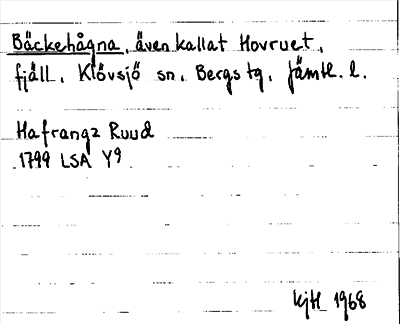 Bäckehågna, även kallat Hovruet,
fjäll, Klövsjö sn, Bergs tg, Jämtl. l.
Hafrangz Ruud
1799 LSA Y9
kjH 1968